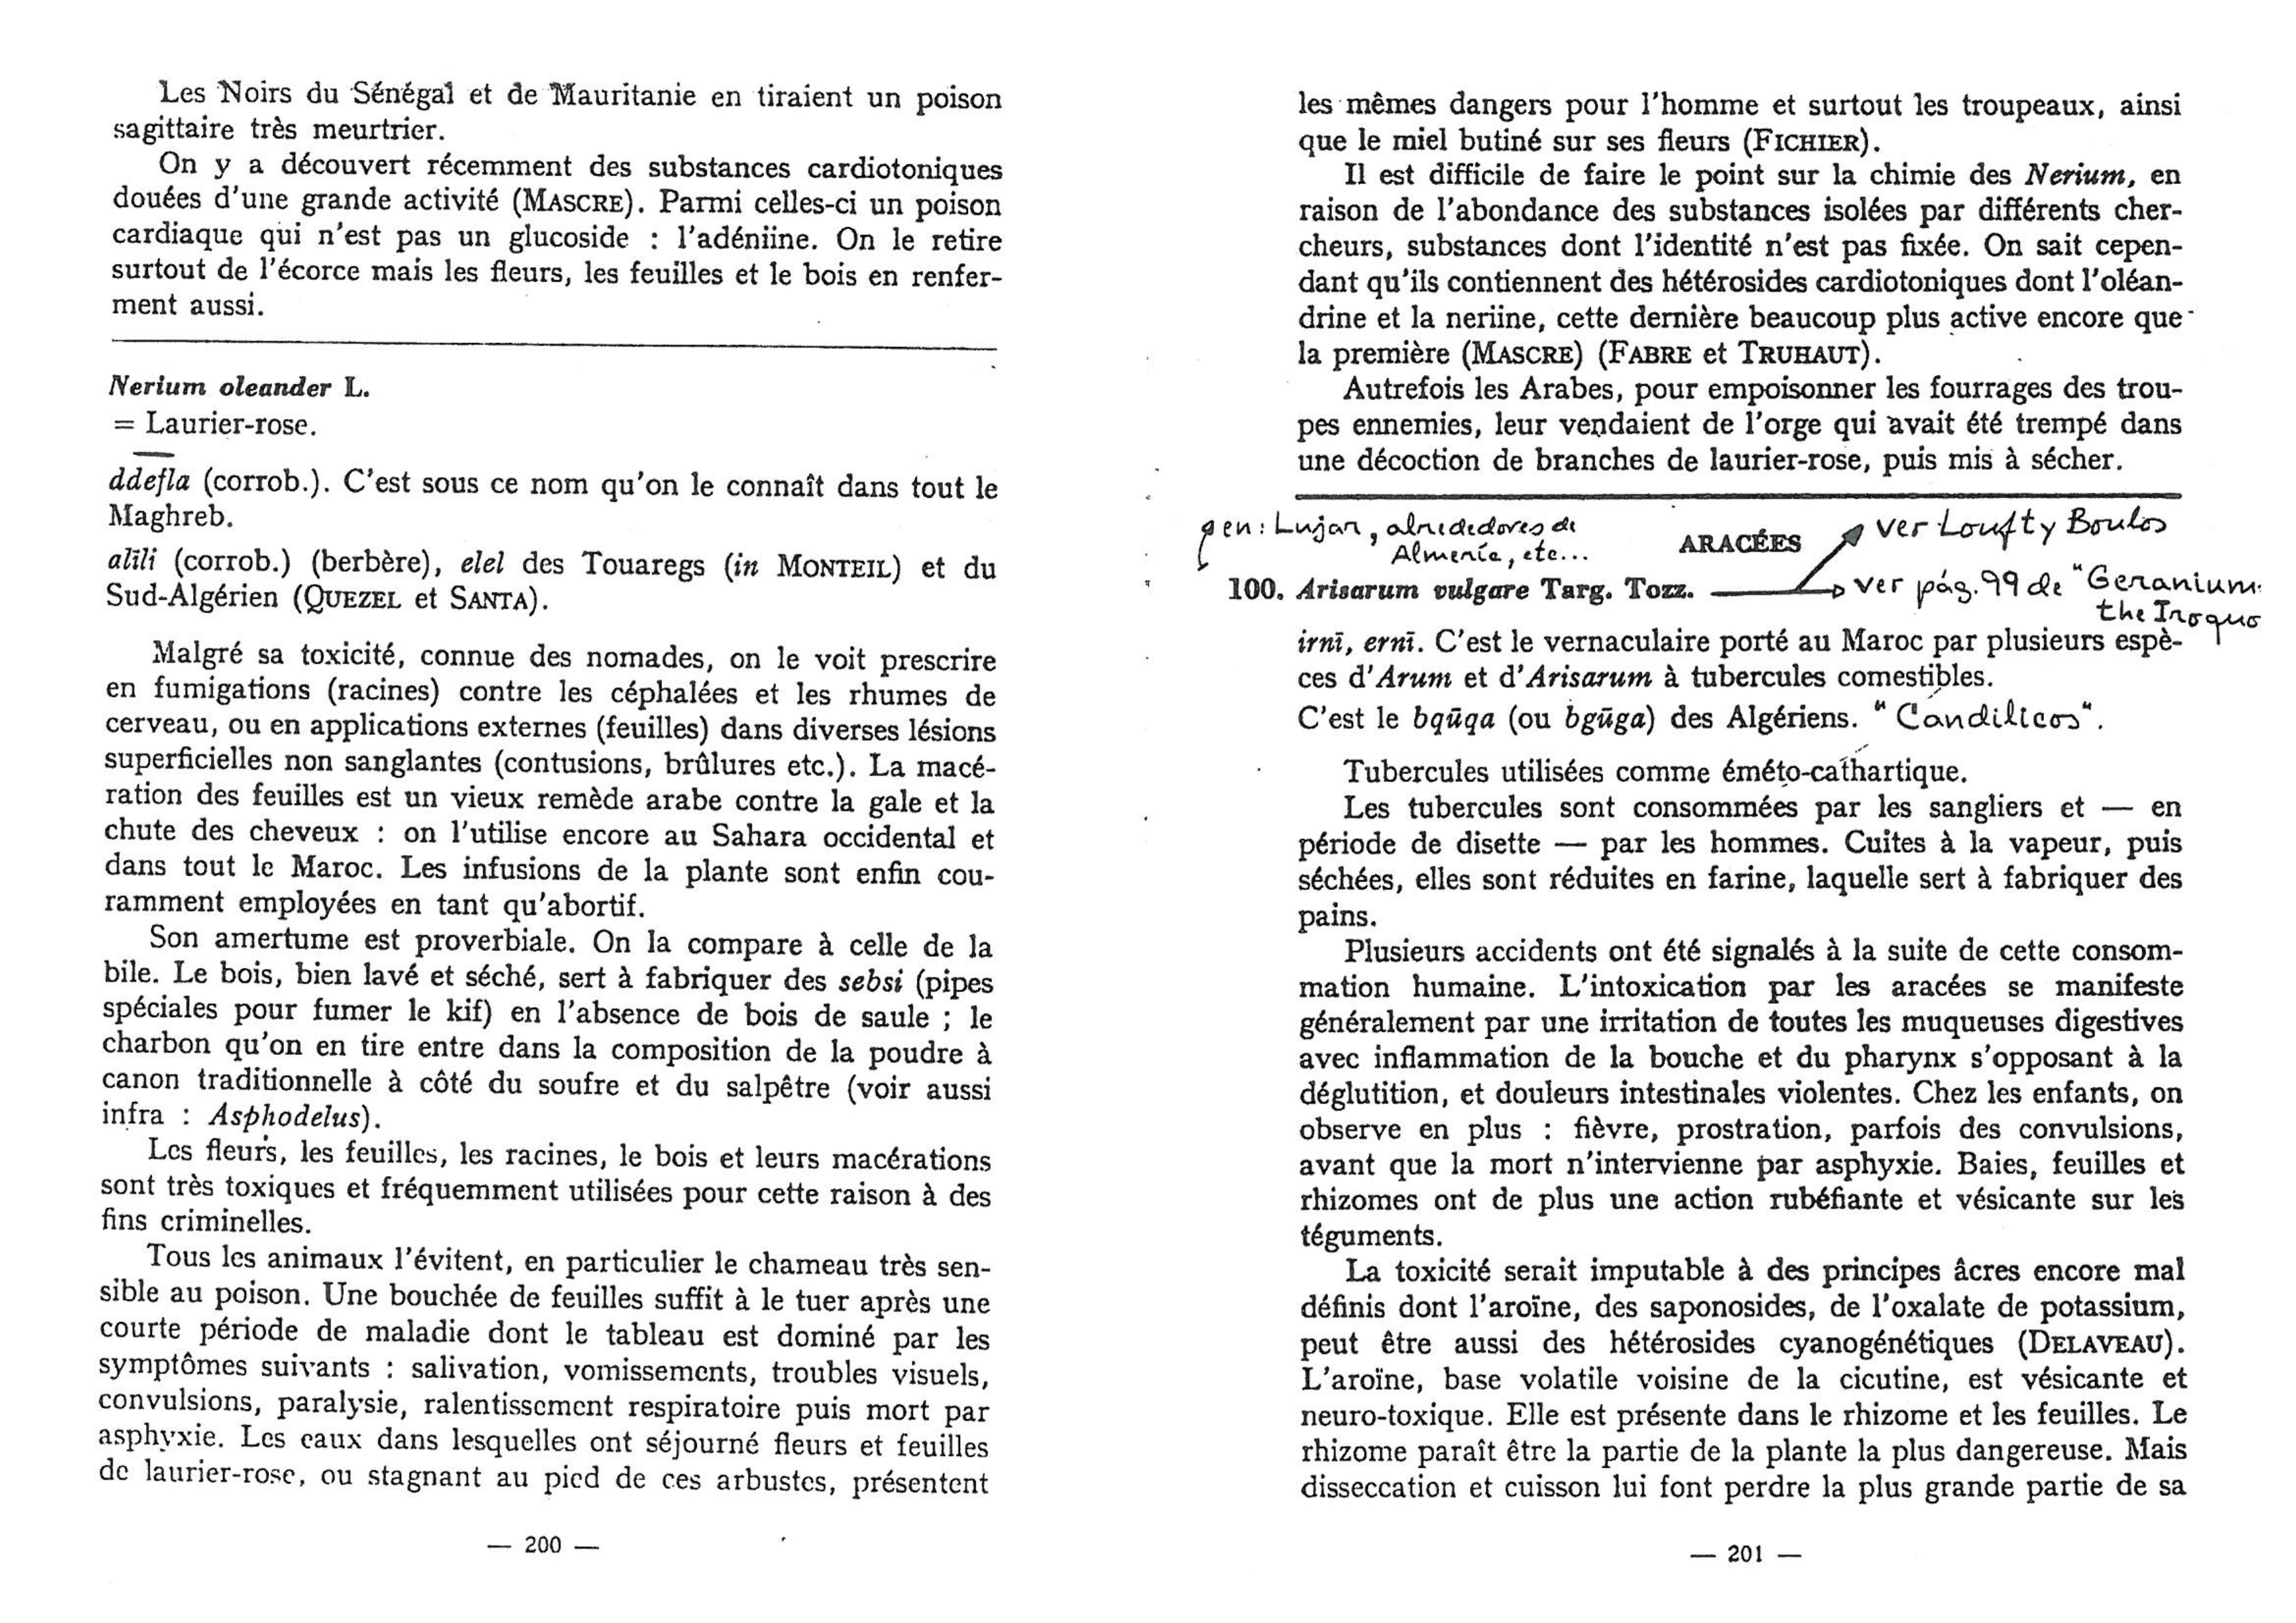 Les Noirs du Sénégal et de Mauritanie en tiraient un poison
sagittaire très meurtrier.
On y a découvert récemment des substances cardiotoniques
douées d'une grande activité (MASCRE). Parmi celles-ci un poison
cardiaque qui n'est pas un glucoside : l'adéniine. On le retire
surtout de l'écorce mais les fleurs, les feuilles et le bois en renfer-
ment aussi.
Nerium oleander L.
= Laurier-rose.
ddefla (corrob.). C'est sous ce nom qu'on le connaît dans tout le
Maghreb.
alili (corrob.) (berbère), elel des Touaregs (in MONTEIL) et du
Sud-Algérien (QUEZEL et SANTA).
Malgré sa toxicité, connue des nomades, on le voit prescrire
en fumigations (racines) contre les céphalées et les rhumes de
cerveau, ou en applications externes (feuilles) dans diverses lésions
superficielles non sanglantes (contusions, brûlures etc.). La macé-
ration des feuilles est un vieux remède arabe contre la gale et la
chute des cheveux : on l'utilise encore au Sahara occidental et
dans tout le Maroc. Les infusions de la plante sont enfin cou-
ramment employées en tant qu'abortif.
Son amertume est proverbiale. On la compare à celle de la
bile. Le bois, bien lavé et séché, sert à fabriquer des sebsi (pipes
spéciales pour fumer le kif) en l'absence de bois de saule ; le
charbon qu'on en tire entre dans la composition de la poudre à
canon traditionnelle à côté du soufre et du salpêtre (voir aussi
infra : Asphodelus).
Les fleurs, les feuilles, les racines, le bois et leurs macérations
sont très toxiques et fréquemment utilisées pour cette raison à des
fins criminelles.
Tous les animaux l'évitent, en particulier le chameau très sen-
sible au poison. Une bouchée de feuilles suffit à le tuer après une
courte période de maladie dont le tableau est dominé par les
symptômes suivants : salivation, vomissements, troubles visuels,
convulsions, paralysie, ralentissement respiratoire puis mort par
asphyxie. Les eaux dans lesquelles ont séjourné fleurs et feuilles
de laurier-rose, ou stagnant au pied de ces arbustes, présentent
— 200 —
les mêmes dangers pour l'homme et surtout les troupeaux, ainsi
que le miel butiné sur ses fleurs (FICHIER).
Il est difficile de faire le point sur la chimie des Nerium, en
raison de l'abondance des substances isolées par différents cher-
cheurs, substances dont l'identité n'est pas fixée. On sait cepen-
dant qu'ils contiennent des hétérosides cardiotoniques dont l'oléan-
drine et la neriine, cette dernière beaucoup plus active encore que
la première (MASCRE) (FABRE et TRUHAUT).
Autrefois les Arabes, pour empoisonner les fourrages des trou-
pes ennemies, leur vendaient de l'orge qui avait été trempé dans
une décoction de branches de laurier-rose, puis mis à sécher.
en: Lujar, alrededores de
Almería, etc...
ARACÉES
ver Loufty Boulos
100. Arisarum vulgare Targ. Tozz.
ver pág. 99 de "Geranium
the Iroquo
irnī, ernī. C'est le vernaculaire porté au Maroc par plusieurs espè-
ces d'Arum et d'Arisarum à tubercules comestibles.
C'est le bqūqa (ou bgūga) des Algériens. "Candilicos".
Tubercules utilisées comme éméto-cathartique.
Les tubercules sont consommées par les sangliers et — en
période de disette — par les hommes. Cuites à la vapeur, puis
séchées, elles sont réduites en farine, laquelle sert à fabriquer des
pains.
Plusieurs accidents ont été signalés à la suite de cette consom-
mation humaine. L'intoxication par les aracées se manifeste
généralement par une irritation de toutes les muqueuses digestives
avec inflammation de la bouche et du pharynx s'opposant à la
déglutition, et douleurs intestinales violentes. Chez les enfants, on
observe en plus : fièvre, prostration, parfois des convulsions,
avant que la mort n'intervienne par asphyxie. Baies, feuilles et
rhizomes ont de plus une action rubéfiante et vésicante sur les
téguments.
La toxicité serait imputable à des principes âcres encore mal
définis dont l'aroïne, des saponosides, de l'oxalate de potassium,
peut être aussi des hétérosides cyanogénétiques (DELAVEAU).
L'aroïne, base volatile voisine de la cicutine, est vésicante et
neuro-toxique. Elle est présente dans le rhizome et les feuilles. Le
rhizome paraît être la partie de la plante la plus dangereuse. Mais
disseccation et cuisson lui font perdre la plus grande partie de sa
— 201 —